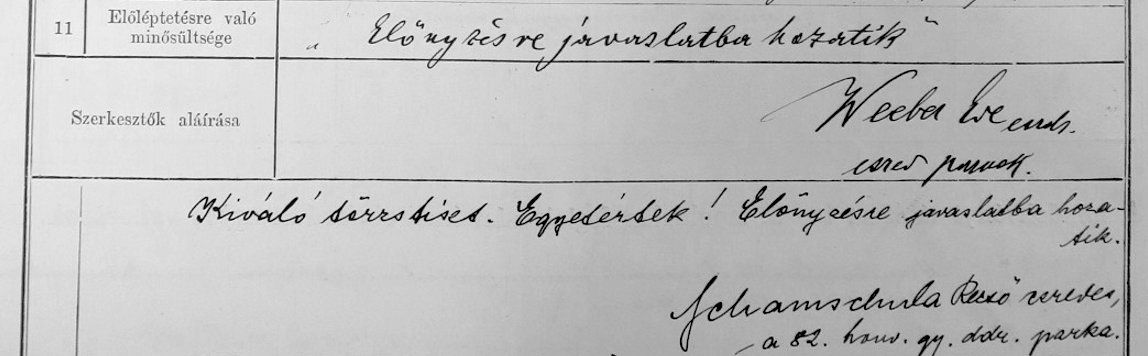 11 Előléptetésre való minősültsége
„Előnyzésre javaslatba hozatik"
Szerkesztők aláírása
Weeber
ezred parnok.
Kiváló törzstiszt. Egyetértek! Előnyzésre javaslatba hoza-
tik.
Schamschula Rezső ezredes,
a 82. honv. gy. ddr. parka.